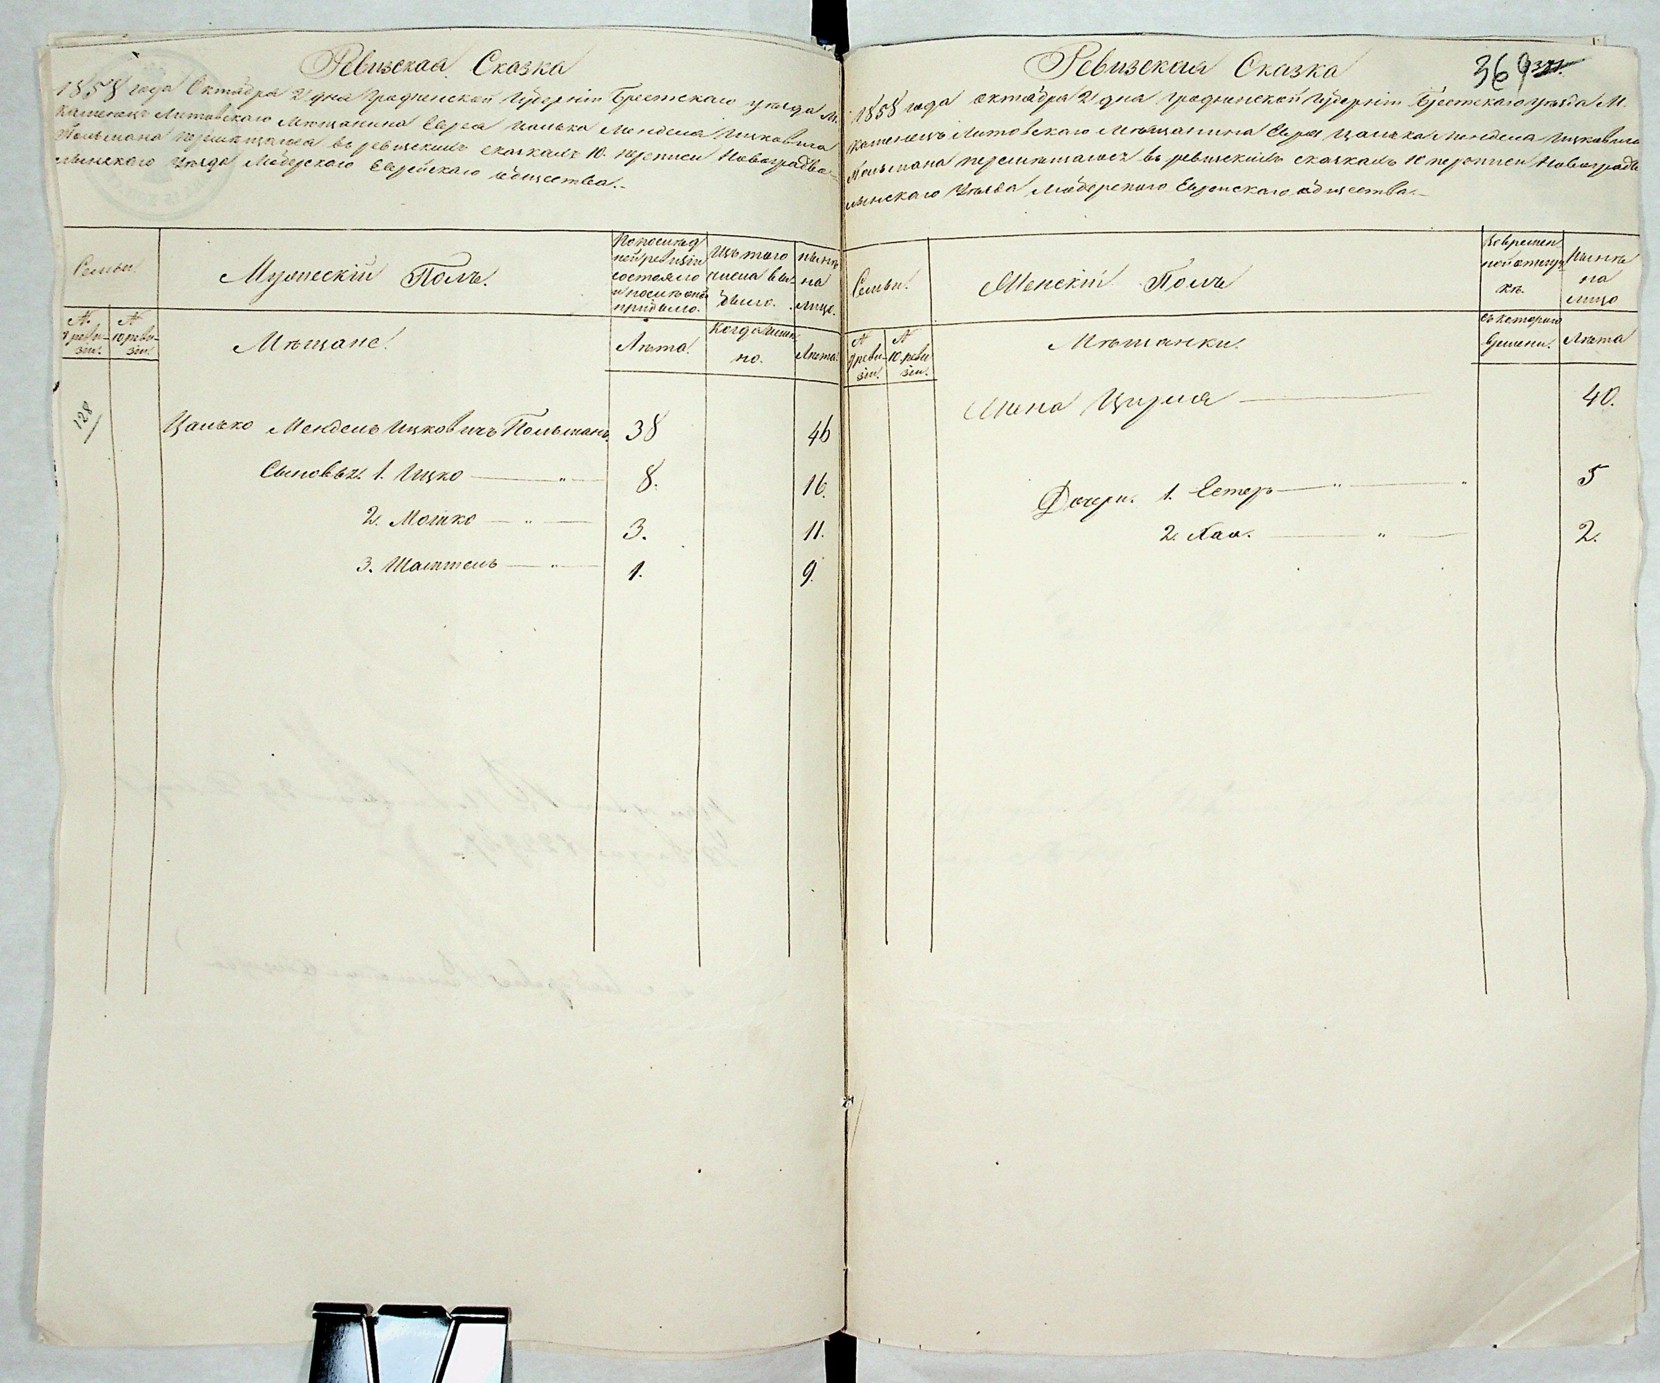 Ревизская Сказка
1858 года Октября 2 дня Гродненской Губернiи Брестскаго уѣзда М.
Каменецъ Литовскаго Мѣщанина Еврея Цалько Менделя Ицковича
Польмана перемѣщался въ ревизскимъ сказкамъ 10. переписи Новоградво-
лынскаго Уѣзда Еврейскаго общества.
Семьи.
Мужескiй Полъ.
По послѣд
ней ревизiи
состояло
и послѣ оной
прибыло.
Изъ того
числа вы-
было.
нынѣ
на
лицо.
№
9 реви-
зiи.
№
10 реви-
зiи.
Мѣщане.
Лѣта.
Когда имен-
но.
Лѣта.
128
Цалько Мендель Ицковичъ Польманъ. 38 46
Сыновья. 1. Ицко — „ — 8. 16.
2. Мошко — „ — 3. 11.
3. — „ — 1. 9.
Ревизская Сказка
369
1858 года октября 2 дня Гродненской Губернiи Брестскаго уѣзда М.
Каменецъ Литовскаго Мѣщанина Еврея Цалька Менделя Ицковича
Польмана перемѣщался въ ревизскимъ сказкамъ 10 переписи Новоградво
лынскаго Уѣзда Еврейскаго общества.
Семьи.
Женскiй Полъ
Во времен
ной отлуч
кѣ.
Нынѣ
на
лицо
№
9 реви-
зiи.
№
10 реви
зiи.
Мѣщанки.
Съ котораго
времени.
Лѣта
Жена — 40.
Дочери. 1. Естеръ — „ — „ 5
2. Хая. — „ — 2.